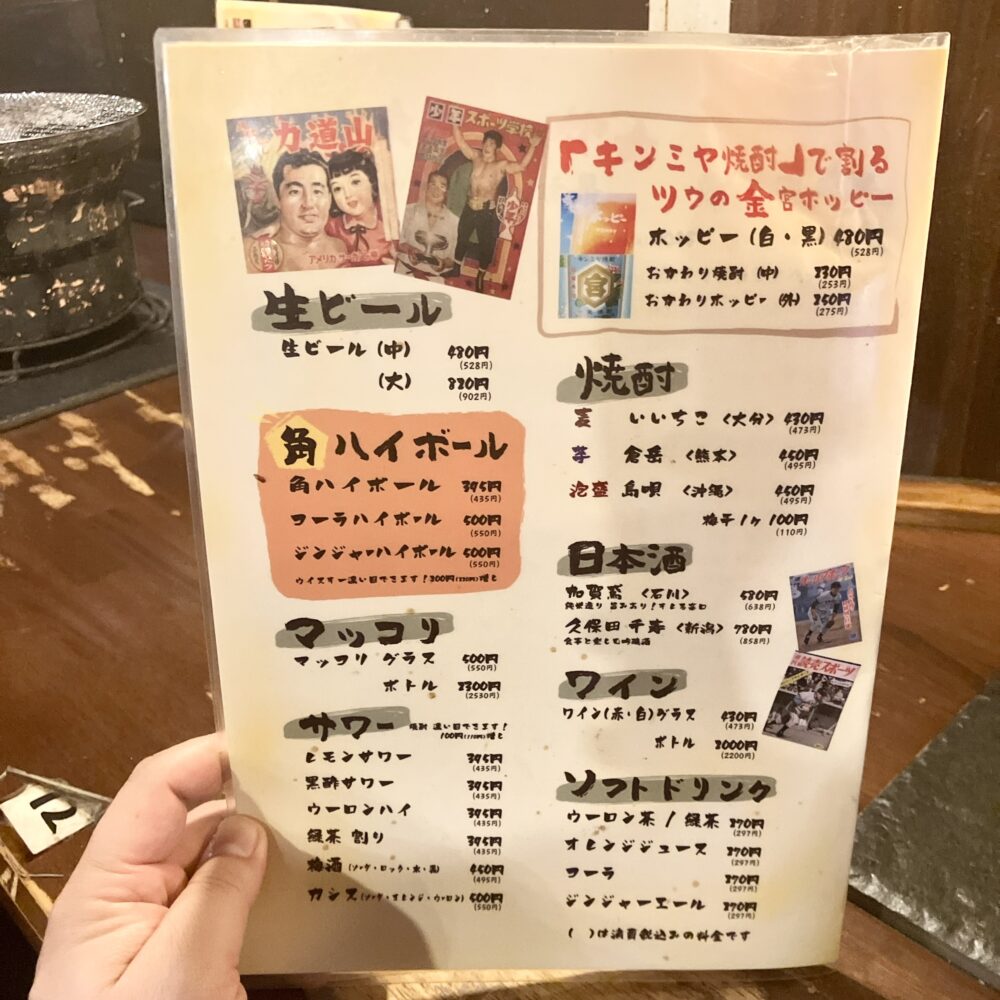 力道山
アメリカ
少年スポーツ学校
『キンミヤ焼酎』で割る
ツウの金宮ホッピー
ホッピー (白・黒) 480円
(528円)
おかわり焼酎 (中) 230円
(253円)
おかわりホッピー (外) 250円
(275円)
キンミヤ焼酎
宮
生ビール
生ビール (中) 480円
(528円)
(大) 820円
(902円)
角ハイボール
角ハイボール 395円
(435円)
コーラハイボール 500円
(550円)
ジンジャーハイボール 500円
(550円)
ウイスキー濃い目できます!200円(220円)増し
マッコリ
マッコリ グラス 500円
(550円)
ボトル 2300円
(2530円)
サワー 焼酎 濃い目できます!
100円(110円)増し
レモンサワー 395円
(435円)
黒酢サワー 395円
(435円)
ウーロンハイ 395円
(435円)
緑茶 割り 395円
(435円)
梅酒 (ソーダ・ロック・水・湯) 450円
(495円)
カシス (ソーダ・オレンジ・ウーロン) 500円
(550円)
焼酎
麦 いいちこ 〈大分〉 430円
(473円)
芋 倉岳 〈熊本〉 450円
(495円)
泡盛 島唄 〈沖縄〉 450円
(495円)
梅干1ヶ 100円
(110円)
日本酒
加賀鳶 〈石川〉 580円
(638円)
久保田 千寿 〈新潟〉 780円
(858円)
食事と楽しむ吟醸酒
読売スポーツ
ワイン
ワイン(赤・白)グラス 430円
(473円)
ボトル 2000円
(2200円)
ソフトドリンク
ウーロン茶 / 緑茶 270円
(297円)
オレンジジュース 270円
(297円)
コーラ 270円
(297円)
ジンジャーエール 270円
(297円)
( )は消費税込みの料金です
12